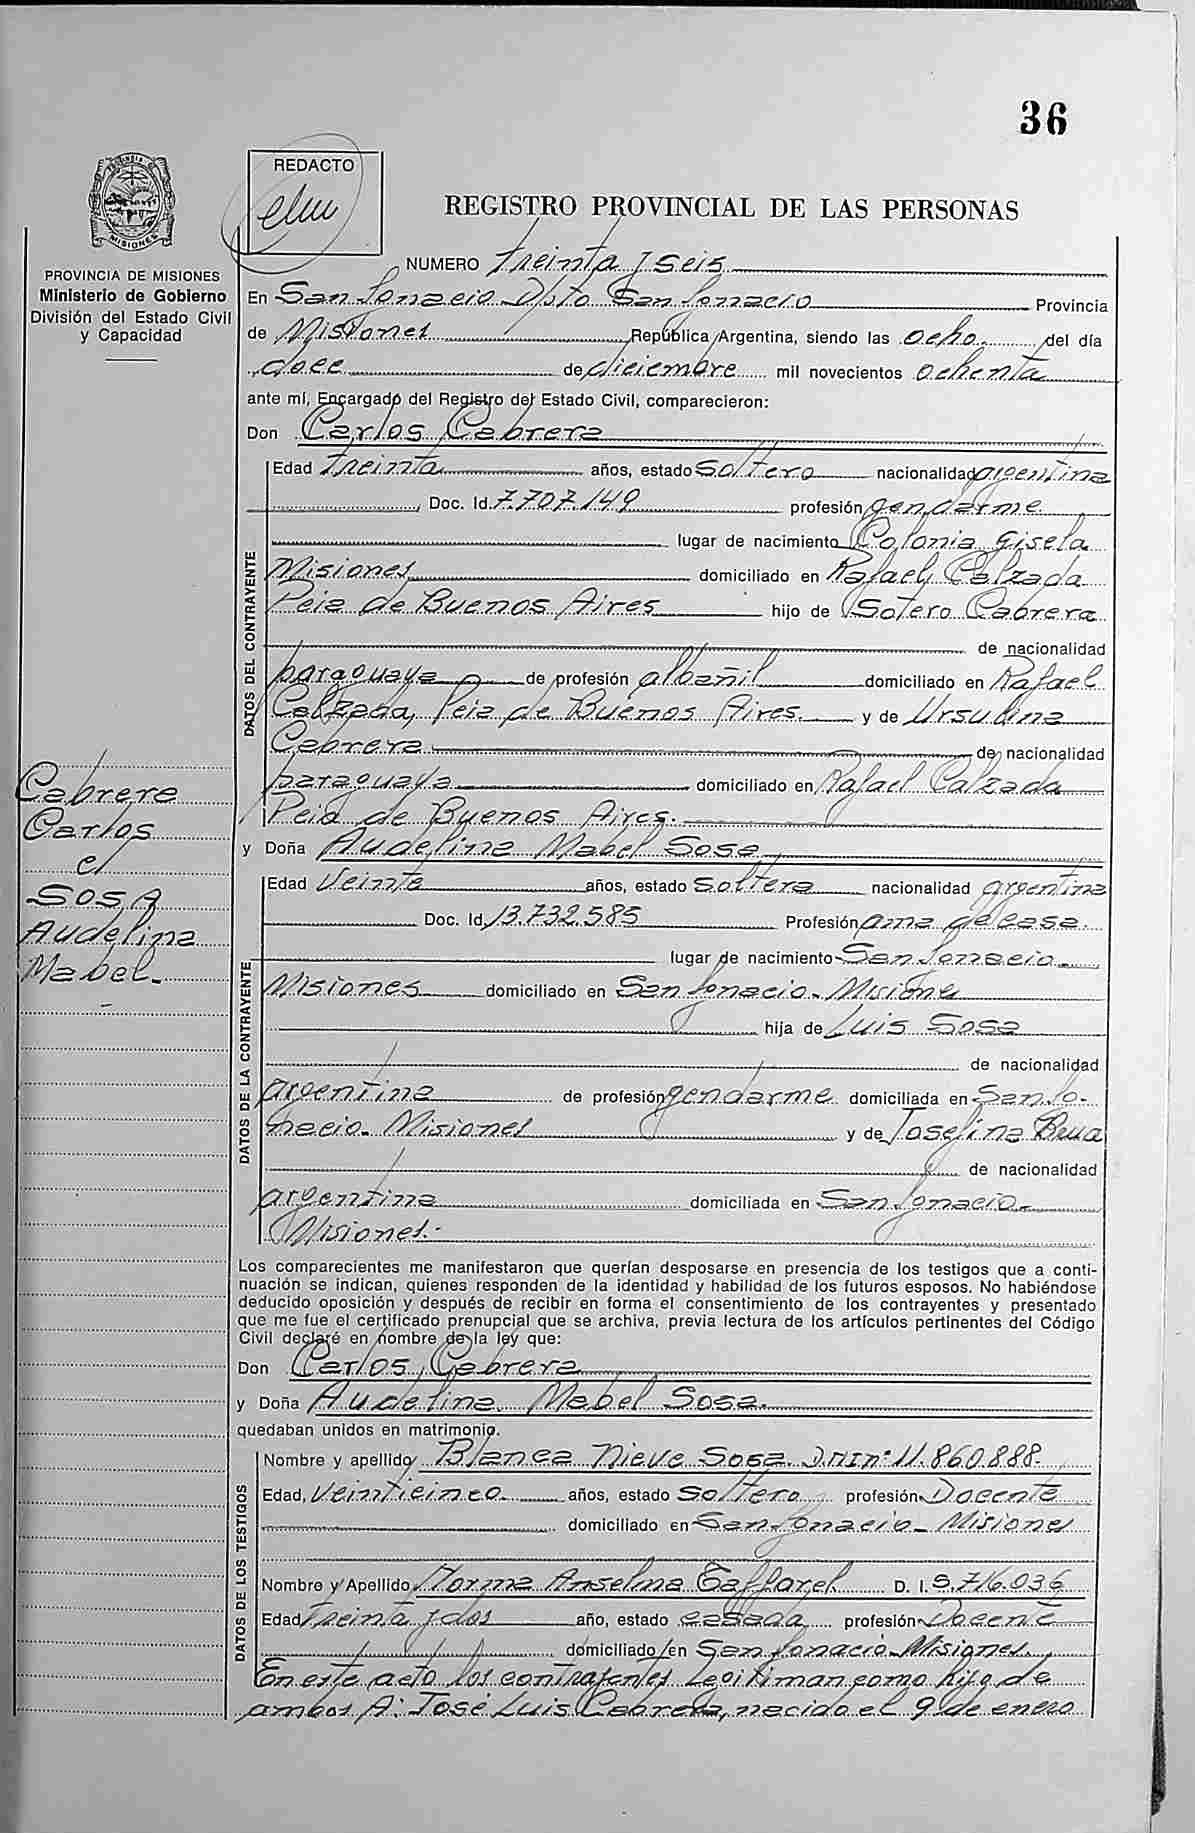 36
REDACTO
elm
PROVINCIA DE MISIONES
Ministerio de Gobierno
División del Estado Civil
y Capacidad
REGISTRO PROVINCIAL DE LAS PERSONAS
NUMERO treinta y seis
En San Ignacio Dpto San Ignacio Provincia
de Misiones República Argentina, siendo las ocho del día
doce de diciembre mil novecientos ochenta
ante mí, Encargado del Registro del Estado Civil, comparecieron:
Don Carlos Cabrera
DATOS DEL CONTRAYENTE
Edad treinta años, estado soltero nacionalidad argentina
Doc. Id. 7.707.149 profesión gendarme
lugar de nacimiento Colonia Gisela
Misiones domiciliado en Rafael Calzada
Pcia de Buenos Aires hijo de Sotero Cabrera
de nacionalidad
paraguaya de profesión albañil domiciliado en Rafael
Calzada, Pcia de Buenos Aires. y de Ursulina
Cabrera de nacionalidad
paraguaya domiciliado en Rafael Calzada
Pcia de Buenos Aires.
Cabrera
Carlos
c/
SOSA
Audelina
Mabel.-
y Doña Audelina Mabel Sosa
DATOS DE LA CONTRAYENTE
Edad Veinte años, estado soltera nacionalidad argentina
Doc. Id. 13.732.585 Profesión ama de casa.
lugar de nacimiento San Ignacio
Misiones domiciliado en San Ignacio - Misiones
hija de Luis Sosa
de nacionalidad
argentina de profesión gendarme domiciliada en San Ig-
nacio - Misiones y de Josefina
de nacionalidad
argentina domiciliada en San Ignacio -
Misiones.-
Los comparecientes me manifestaron que querían desposarse en presencia de los testigos que a conti-
nuación se indican, quienes responden de la identidad y habilidad de los futuros esposos. No habiéndose
deducido oposición y después de recibir en forma el consentimiento de los contrayentes y presentado
que me fue el certificado prenupcial que se archiva, previa lectura de los artículos pertinentes del Código
Civil declaré en nombre de la ley que:
Don Carlos Cabrera
y Doña Audelina Mabel Sosa.
quedaban unidos en matrimonio.
DATOS DE LOS TESTIGOS
Nombre y apellido Blanca Nieve Sosa. D.N.I.Nº 11.860.888.
Edad, veinticinco años, estado soltera profesión Docente
domiciliado en San Ignacio - Misiones
Nombre y Apellido Norma Anselma Gaffarel D. I. 5.716.036
Edad treinta y dos año, estado casada profesión Docente
domiciliado en San Ignacio - Misiones.
En este acto los contrayentes legitiman como hijo de
ambos A: José Luis Cabrera, nacido el 9 de enero